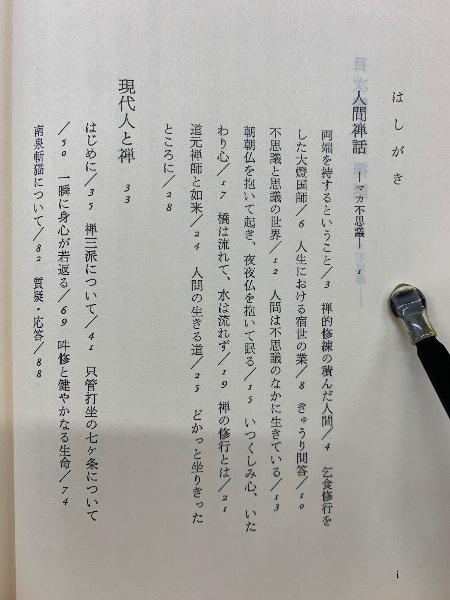 はしがき
人間禅話 ―マカ不思議― 1
両端を持するということ/3 禅的修練の積んだ人間/4 乞食修行を
した大燈国師/6 人生における宿世の業/8 きゅうり問答/10
不思議と思議の世界/12 人間は不思議のなかに生きている/13
朝朝仏を抱いて起き、夜夜仏を抱いて眠る/15 いつくしみ心、いた
わり心/17 橋は流れて、水は流れず/19 禅の修行とは/21
道元禅師と如来/24 人間の生きる道/25 どかっと坐りきった
ところに/28
現代人と禅 33
はじめに/35 禅三派について/41 只管打坐の七ヶ条について
/50 一瞬に身心が若返る/69 吽修と健やかなる生命/74
南泉斬猫について/82 質疑・応答/88
i